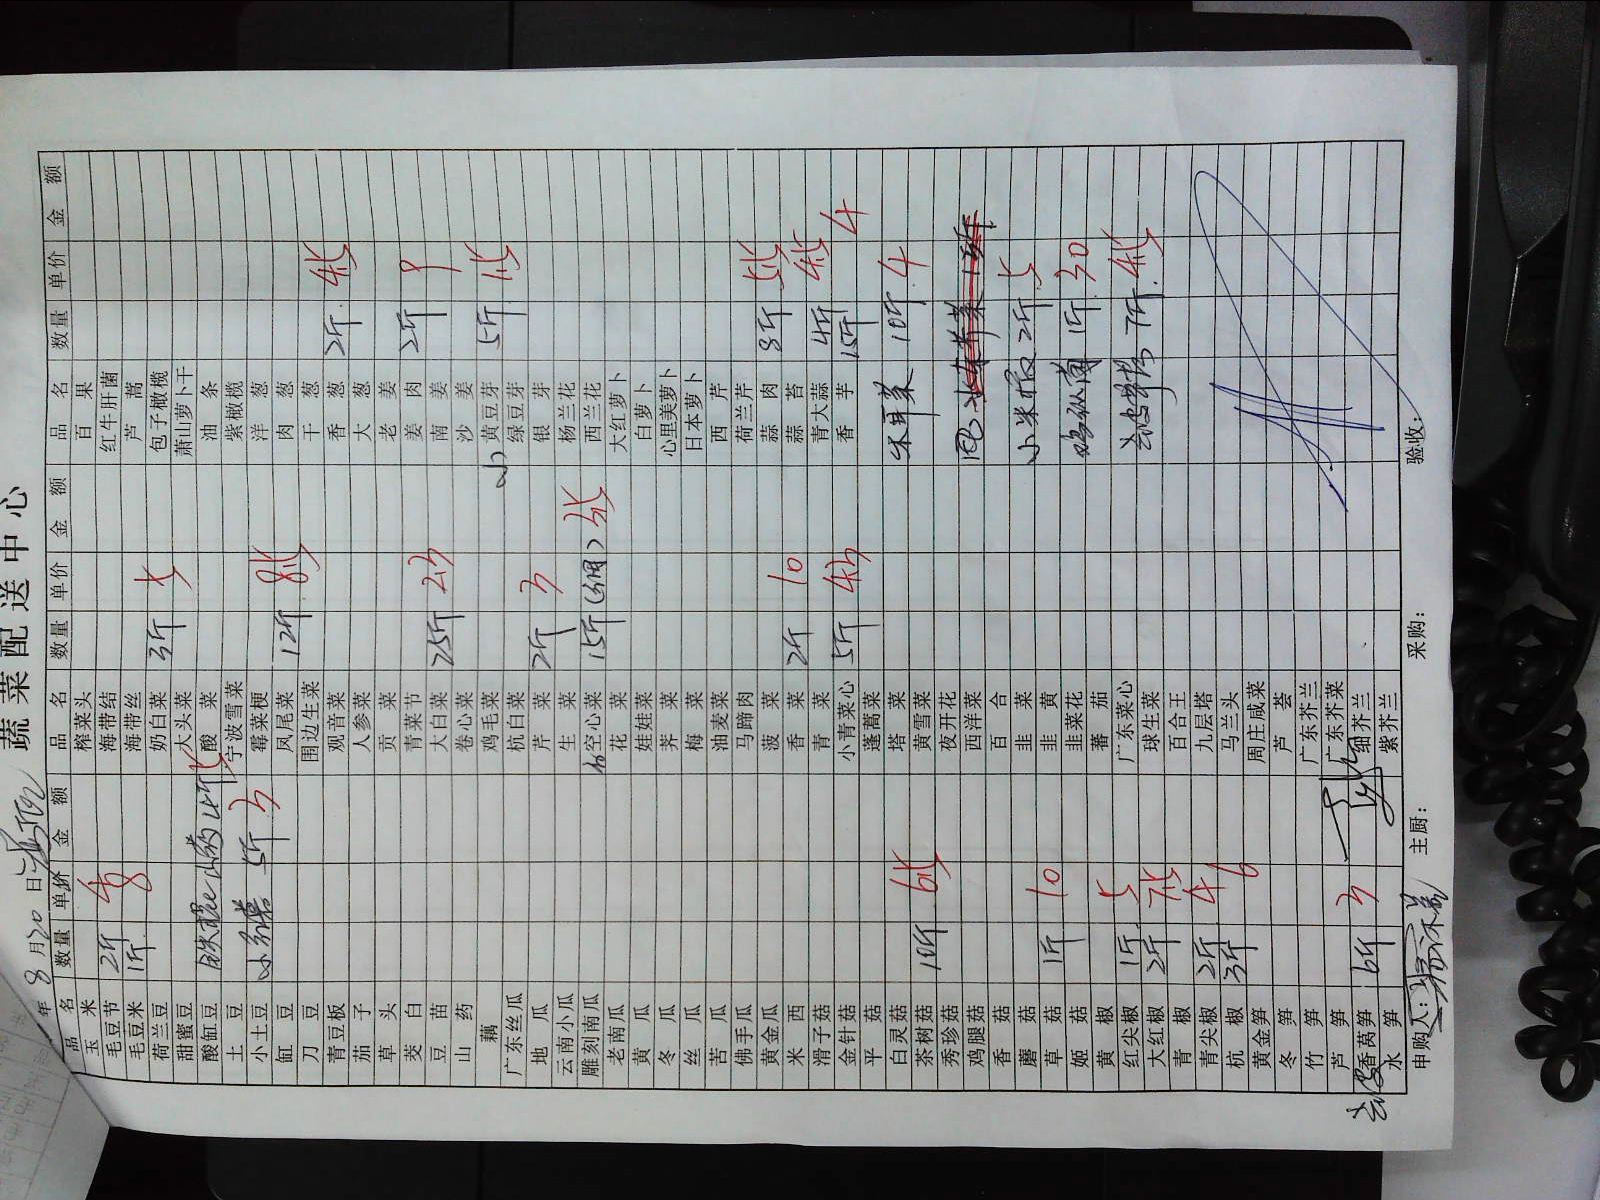 蔬菜配送中心
年 8 月 20 日
品名 数量 单价 金额 品名 数量 单价 金额 品名 数量 单价 金额
玉米 榨菜头 百果
毛豆节 2斤 海带结 红牛肝菌
毛豆米 1斤 8 海带丝 芦蒿
荷兰豆 奶白菜 3斤 包子橄榄
甜蜜豆 大头菜 萧山萝卜干
酸缸豆 铁棍山药 酸菜 油条
土豆 宁波雪菜 紫橄榄
小土豆 5斤 3 霉菜梗 洋葱
缸豆 凤尾菜 12斤 肉葱
刀豆 围边生菜 干葱
青豆板 观音菜 香葱 2斤
茄子 人参菜 大葱
草头 贡菜 老姜
茭白 青菜节 姜肉 2斤 9
豆苗 大白菜 25斤 23 南姜
山药 卷心菜 沙姜
藕 鸡毛菜 小黄豆芽 5斤
广东丝瓜 杭白菜 绿豆芽
地瓜 芹菜 2斤 3 银芽
云南小瓜 生菜 杨兰花
雕刻南瓜 空心菜 15斤 西兰花
老南瓜 花菜 大红萝卜
黄瓜 娃娃菜 白萝卜
冬瓜 荠菜 心里美萝卜
丝瓜 梅菜 日本萝卜
苦瓜 油麦菜 西芹
佛手瓜 马蹄肉 荷兰芹
黄金瓜 菠菜 蒜肉 3斤
米西 香菜 2斤 10 蒜苔
滑子菇 青菜 青大蒜 4斤
金针菇 小青菜心 5斤 43 香芋 15斤 4
平菇 蓬蒿菜
白灵菇 塔菜 木耳菜 10斤 4
茶树菇 1斤 黄雪菜
秀珍菇 夜开花
鸡腿菇 西洋菜
香菇 百合
蘑菇 韭菜 小米椒 2斤 5
草菇 1斤 10 韭黄
姬菇 韭菜花 鸡纵菌 1斤 30
黄椒 蕃茄
红尖椒 1斤 5 广东菜心 7斤
大红椒 2斤 球生菜
青椒 百合王
青尖椒 2斤 4 九层塔
杭椒 3斤 6 马兰头
黄金笋 周庄咸菜
冬笋 芦荟
竹笋 广东芥兰
芦笋 广东芥菜
香莴笋 6斤 3 细芥兰
水笋 紫芥兰
申购人: 主厨: 采购: 验收: